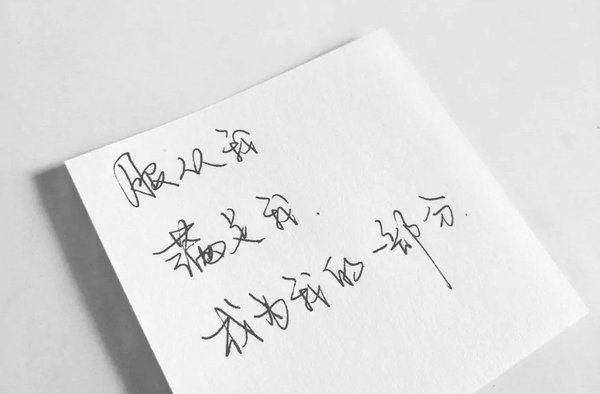 服从我
藐是我.
成为我的一部分.